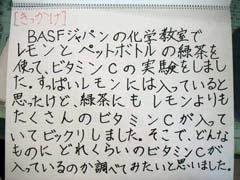 [きっかけ]
BASFジャパンの化学教室で
レモンとペットボトルの緑茶を
使って、ビタミンCの実験をしまし
た。すっぱいレモンには入っていると
思ったけど、緑茶にもレモンよりも
たくさんのビタミンCが入って
いてビックリしました。そこで、どんな
ものにどれくらいのビタミンCが
入っているのか調べてみたいと思いました。